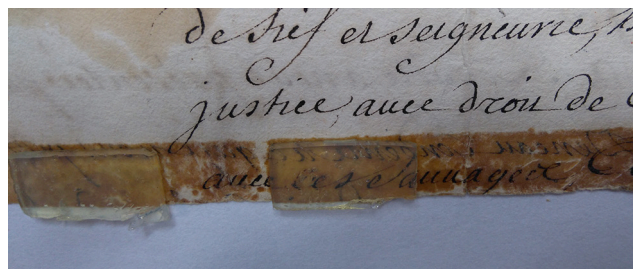 de fief et Seigneurie,
justice, avec droit de
avec les Sauvages